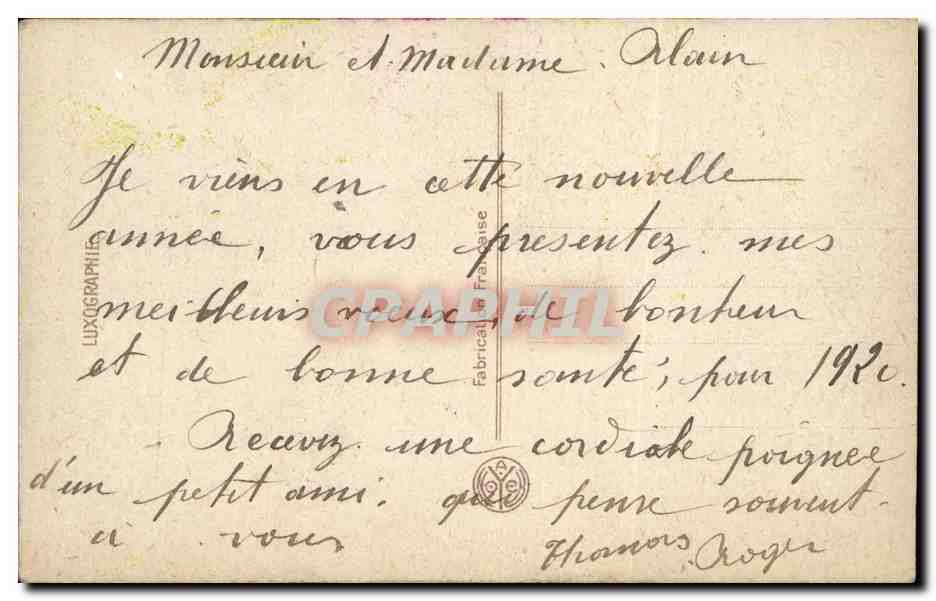 Monsieur et Madame. Alain
Je viens en cette nouvelle
année, vous presentez mes
meilleurs vœux, de bonheur
et de bonne santé, pour 1920.
Recevez une cordiale poignée
d'un petit ami. qui pense souvent
à vous
Thomas Roger
LUXOGRAPHIE
Fabrication Française
CPAPHIL
A